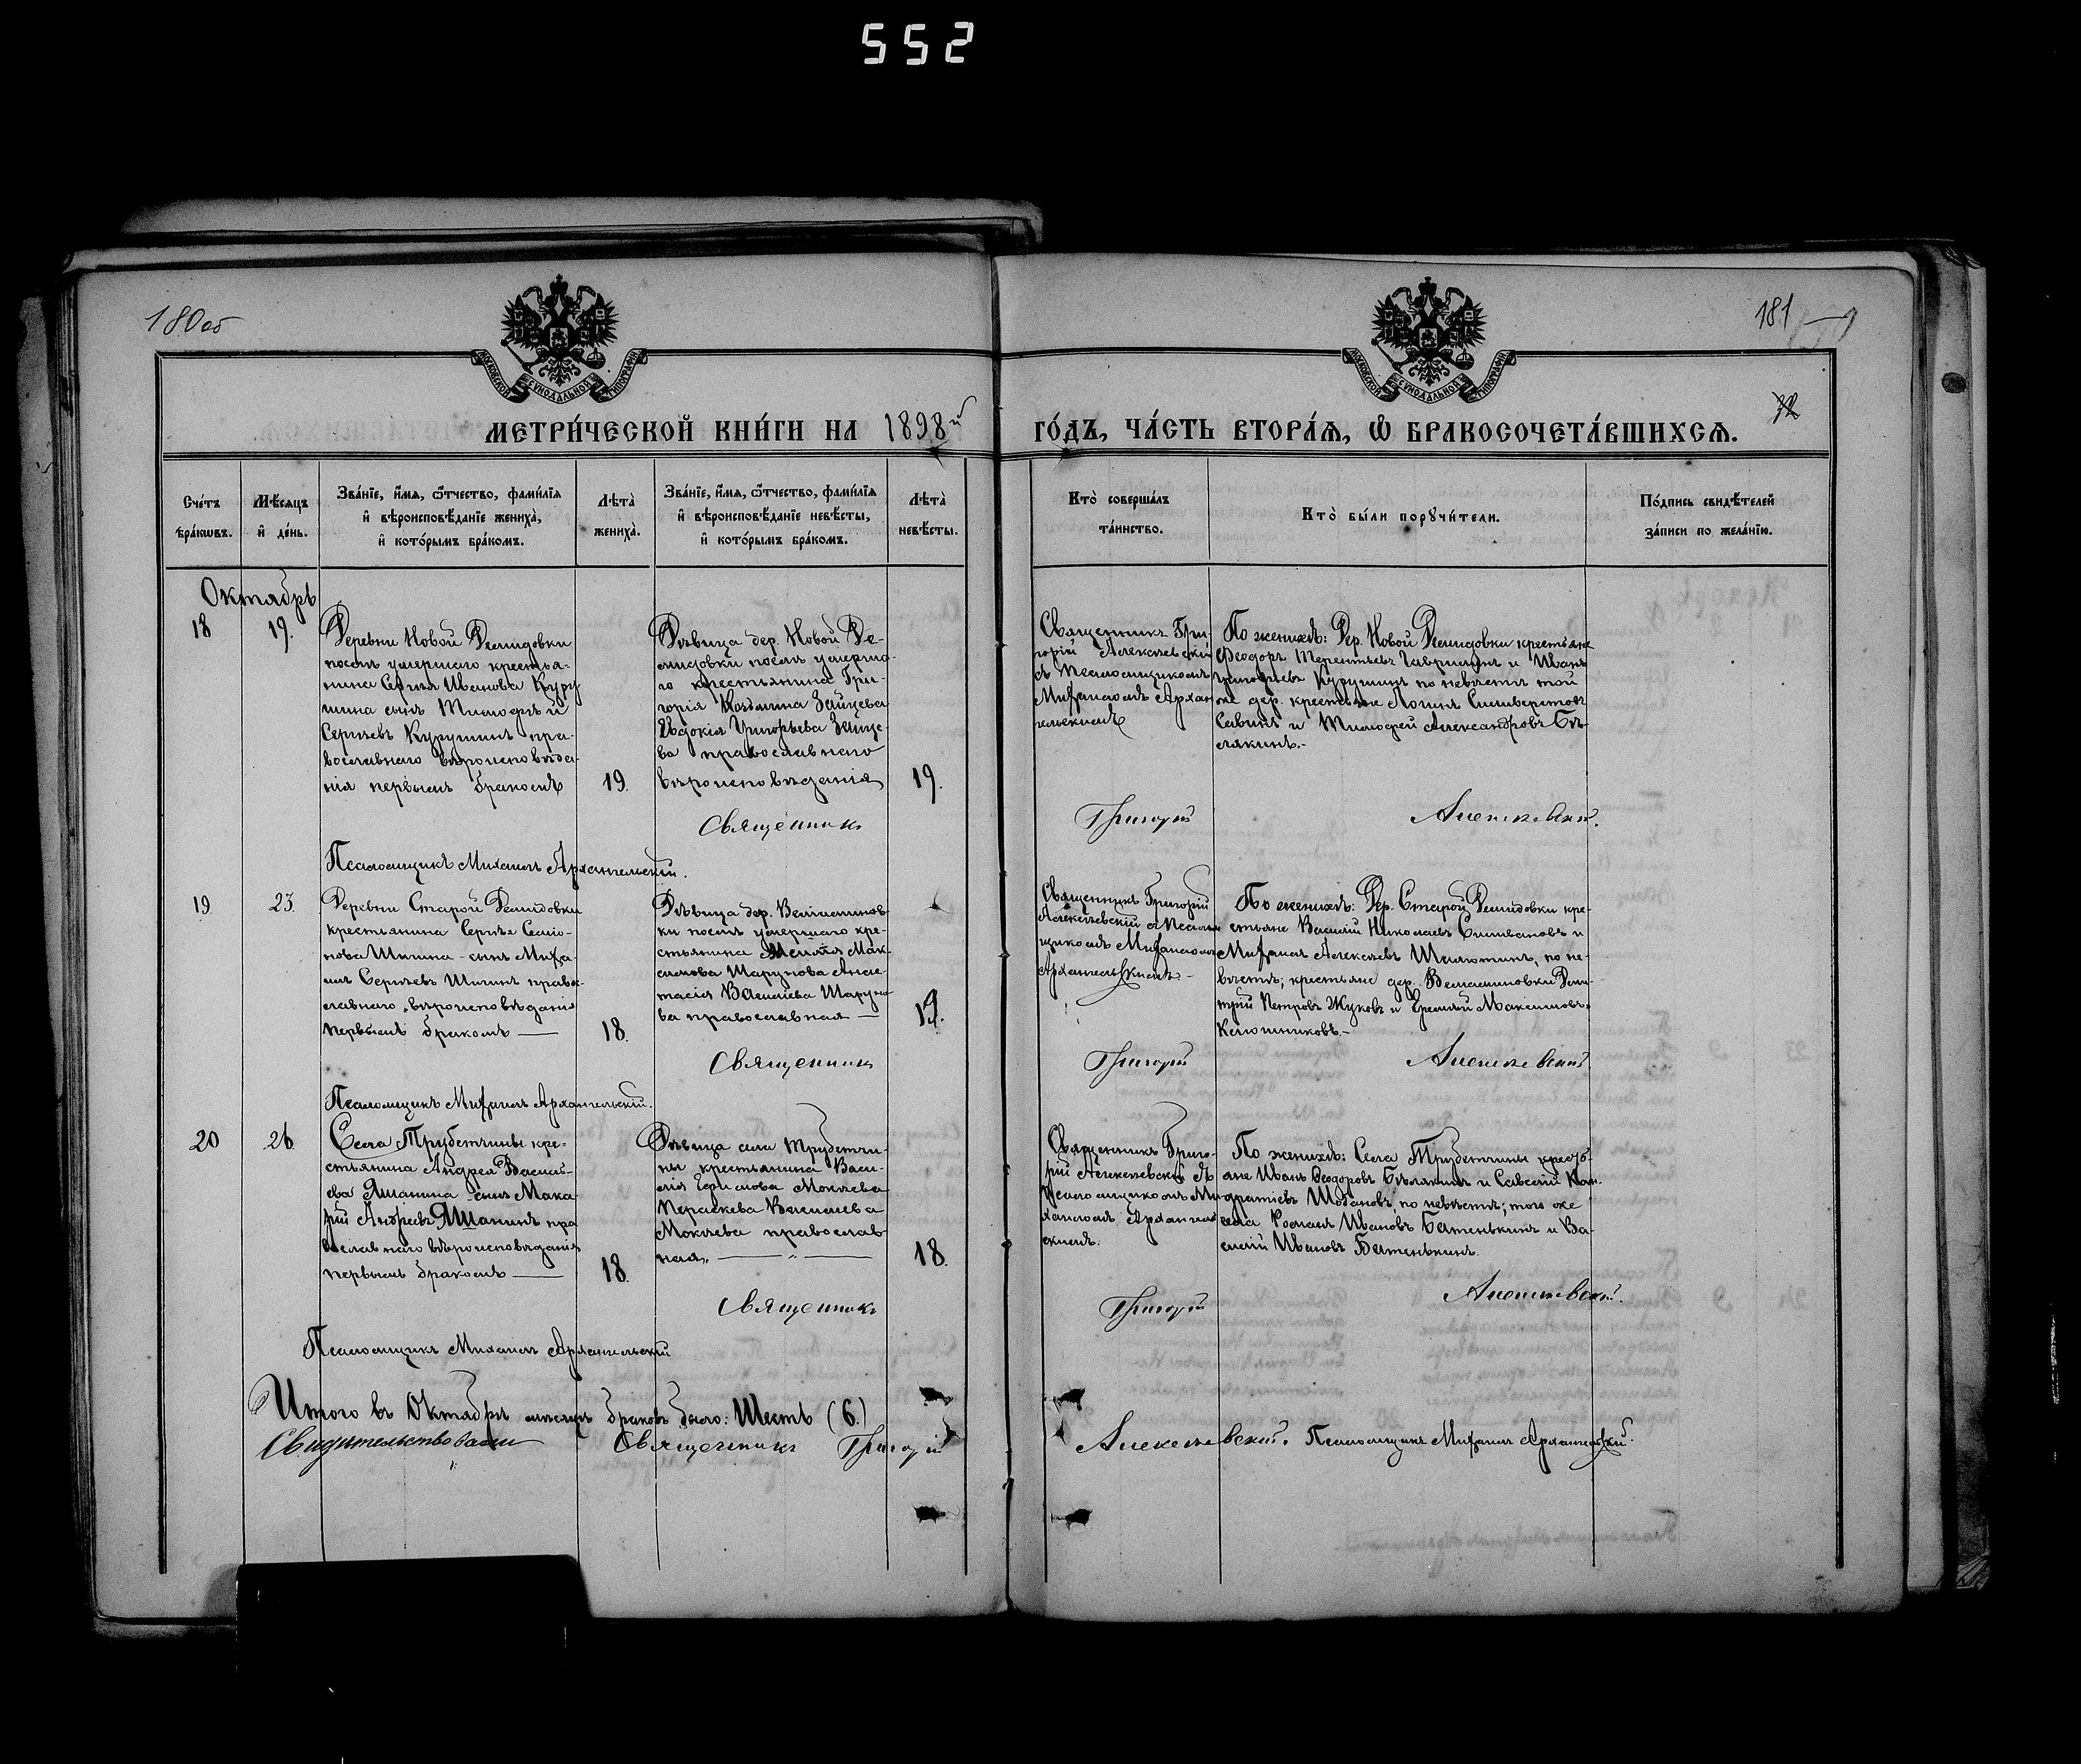 552
180об
181
МОСКОВСКОЙ СѴНОДАЛЬНОЙ ТИПОГРАФІИ
МОСКОВСКОЙ СѴНОДАЛЬНОЙ ТИПОГРАФІИ
МЕТРИ́ЧЕСКОЙ КНИ́ГИ НА 1898й
ГО́ДЪ, ЧА́СТЬ ВТОРА́Ѧ, Ѡ БРАКОСОЧЕТА́ВШИХСѦ.
Сче́тъ бра́кѡвъ.
Мѣ́сѧцъ и҆ де́нь.
Зва́нїе, и҆́мѧ, ѻ҆́тчество, фами́лїѧ
и҆ вѣроисповѣ́данїе жениха̀,
и҆ кото́рымъ бра́комъ.
Лѣта̀ жениха̀.
Зва́нїе, и҆́мѧ, ѻ҆́тчество, фами́лїѧ
и҆ вѣроисповѣ́данїе невѣ́сты,
и҆ кото́рымъ бра́комъ.
Лѣта̀ невѣ́сты.
Кто̀ соверша́лъ
та́инство.
Кто̀ бы́ли порꙋчи́тели.
По́дпись свидѣ́телей
за́писи по жела́нїю.
Октябрь
18
19.
Деревни Новой Демидовки
послѣ умершаго крестья-
нина Сергѣя Иванова Куру
шина сынъ Тимофѣй
Сергѣевъ Курушинъ пра-
вославнаго вѣроисповѣда-
нія первымъ бракомъ
19.
Дѣвица дер. Новой Де-
мидовки послѣ умерша-
го крестьянина Гри-
горія Козьмина Зайцева
Евдокія Григорьева Зайце-
ва православнаго
вѣроисповѣданія
19.
Священникъ Гри-
горій Алексѣевскій
съ псаломщикомъ
Михаиломъ Архан
гельскимъ
По женихѣ: Дер. Новой Демидовки крестьяне
Феодоръ Терентьевъ Гаврилинъ и Иванъ
Курушинъ по невѣстѣ той
же дер. крестьяне Логинъ
Савинъ и Тимофей Александровъ Бѣ-
лякинъ.-
Священникъ
Григорій
Алексѣевскій.
Псаломщикъ Михаилъ Архангельскій.
19.
23.
Деревни Старой Демидовки
крестьянина Сергѣя Семе-
нова Шишина - сынъ Миха-
илъ Сергѣевъ Шишинъ право-
славнаго вѣроисповѣданія
первымъ бракомъ —
18.
Дѣвица дер. Веліаминов-
ки послѣ умершаго кре-
стьянина Мак-
симова Шарунова Анас-
тасія Василіева Шаруно
ва православная —
19.
Священникъ Григорій
Алексѣевскій съ Псалом
щикомъ Михаиломъ
Архангельскимъ -
По женихѣ: Дер. Старой Демидовки кре-
стьяне Василій Николаевъ Селивановъ и
Михаилъ Алексѣевъ по не-
вѣстѣ; крестьяне дер. Веліаминовки Дми-
трій Петровъ Жуковъ и Еремѣй Максимовъ
Священникъ
Григорій
Алексѣевскій.
Псаломщикъ Михаилъ Архангельскій.
20
26.
Села Трубетчины кре-
стьянина Андрея Василь-
ева Яшанина сынъ Мака-
рій Андреевъ Яшанинъ пра
вославнаго вѣроисповѣданія
первымъ бракомъ —
18.
Дѣвица села Трубетчи-
ны крестьянина Васи-
лія Ефимова Мокѣева
Параскева Василіева
Мокѣева православ-
ная. —
18.
Священникъ Григо-
рій Алексѣевскій съ
Псаломщикомъ Ми
хаиломъ Архангель
скимъ.
По женихѣ: Села Трубетчины крестья-
не Иванъ Феодоровъ Бѣлякинъ и Савелій Кон-
дратіевъ Шобановъ, по невѣстѣ; того же
села Романъ Ивановъ Батенькинъ и Ва-
силій Ивановъ Батенькинъ.
Священникъ
Григорій
Алексѣевскій.
Псаломщикъ Михаилъ Архангельскій
Итого въ Октябрѣ мѣсяцѣ браковъ было: Шесть (6.)
Свидѣтельствовали Священникъ Григорій Алексѣевскій. Псаломщикъ Михаилъ Архангельскій.